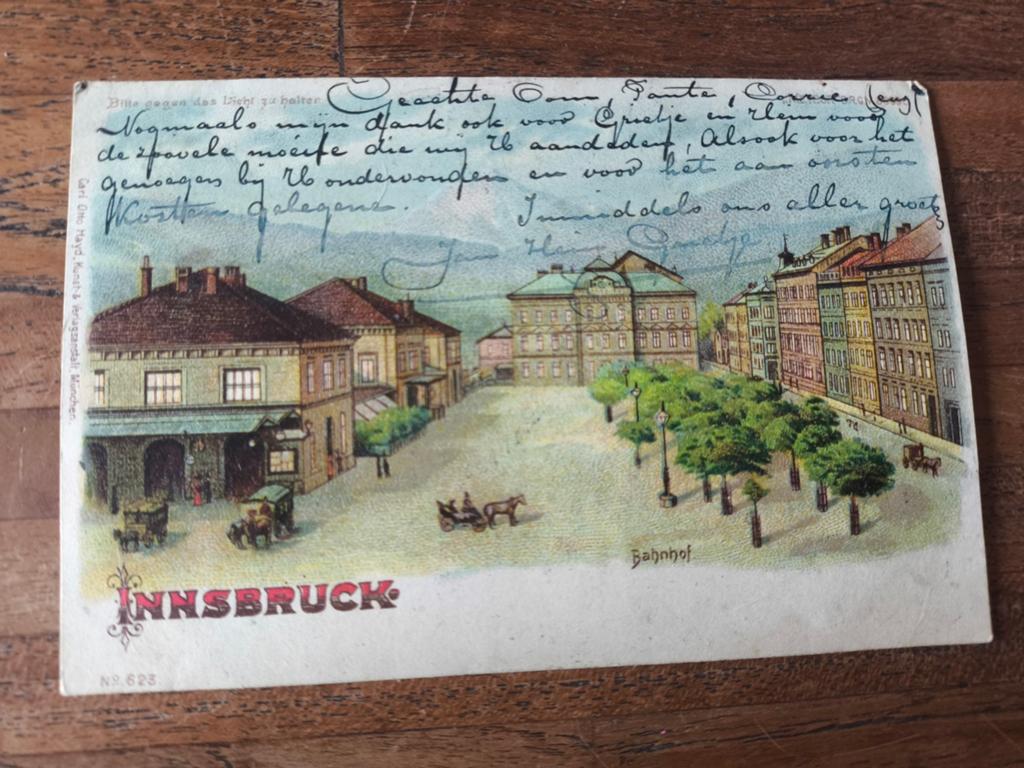 Bitte gegen das Licht zu halten
Geachte Oom, Tante, Corrie (enz)
Nogmaals mijn dank ook voor Grietje en Hein voor
de zpovele moeite die wij U aandeden, Alsook voor het
genoegen bij U ondervonden en voor het aan
Kosten gelegene.
Inmiddels ons aller groet
Jan Hein Grietje
Carl Otto Hayd, Kunst- & Verlagsanstalt, München.
Bahnhof
INNSBRUCK.
No. 623.